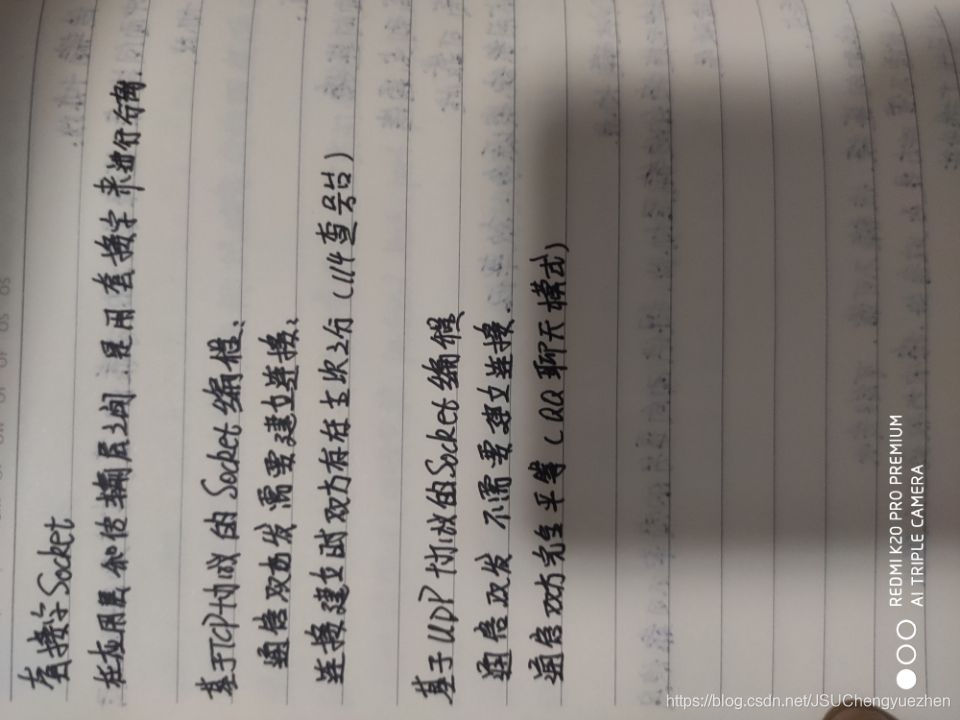 套接字Socket
在应用层和传输层之间 是用 套接字 来进行分离.
基于TCP协议的 Socket编程.
通信双方发需要建立连接.
连接建立时双方存在主次之分(114查号台)
基于UDP协议的Socket编程
通信双发 不需要建立连接.
通信双方完全平等(QQ聊天模式)
REDMI K20 PRO PREMIUM
AI TRIPLE CAMERA
https://blog.csdn.net/JSUChengyuezhen